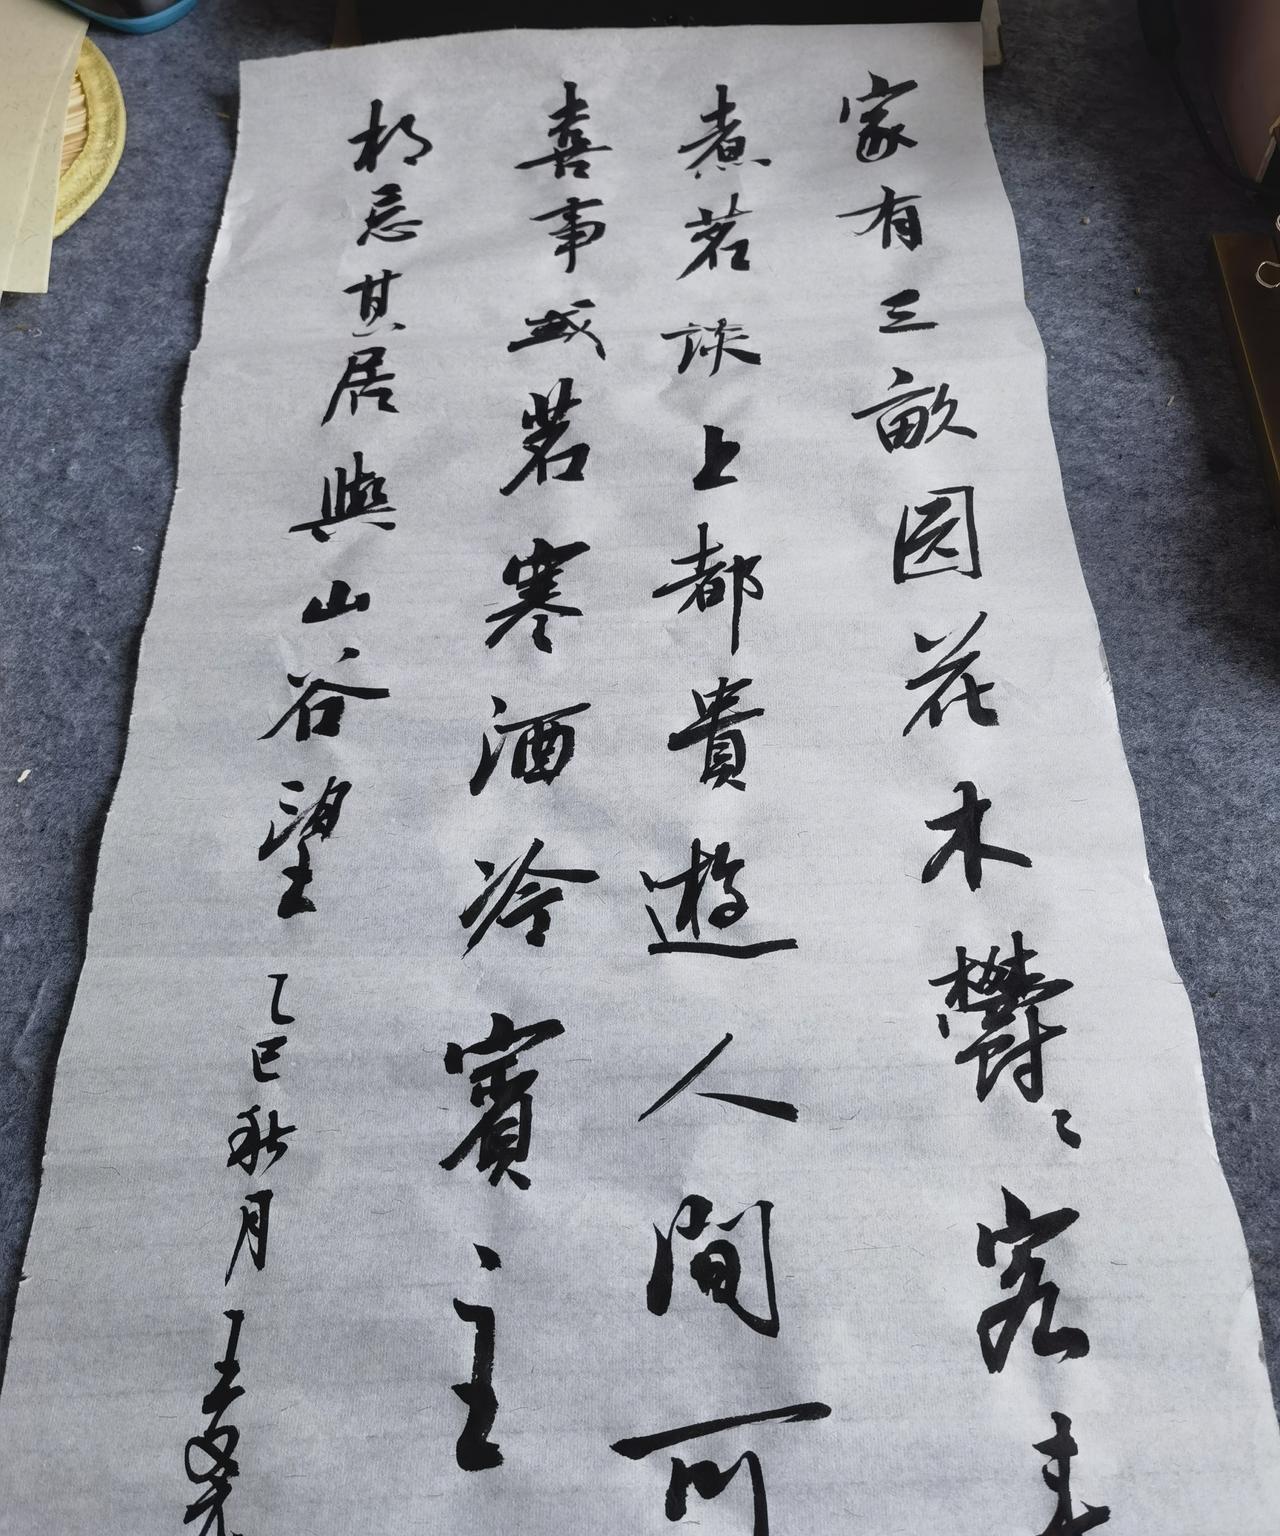 家有三畝园花木鬱〻客来
煮茗談上都貴遊人間可
喜事或茗寒酒冷賓主
相忘其居與山谷望
乙巳秋月王